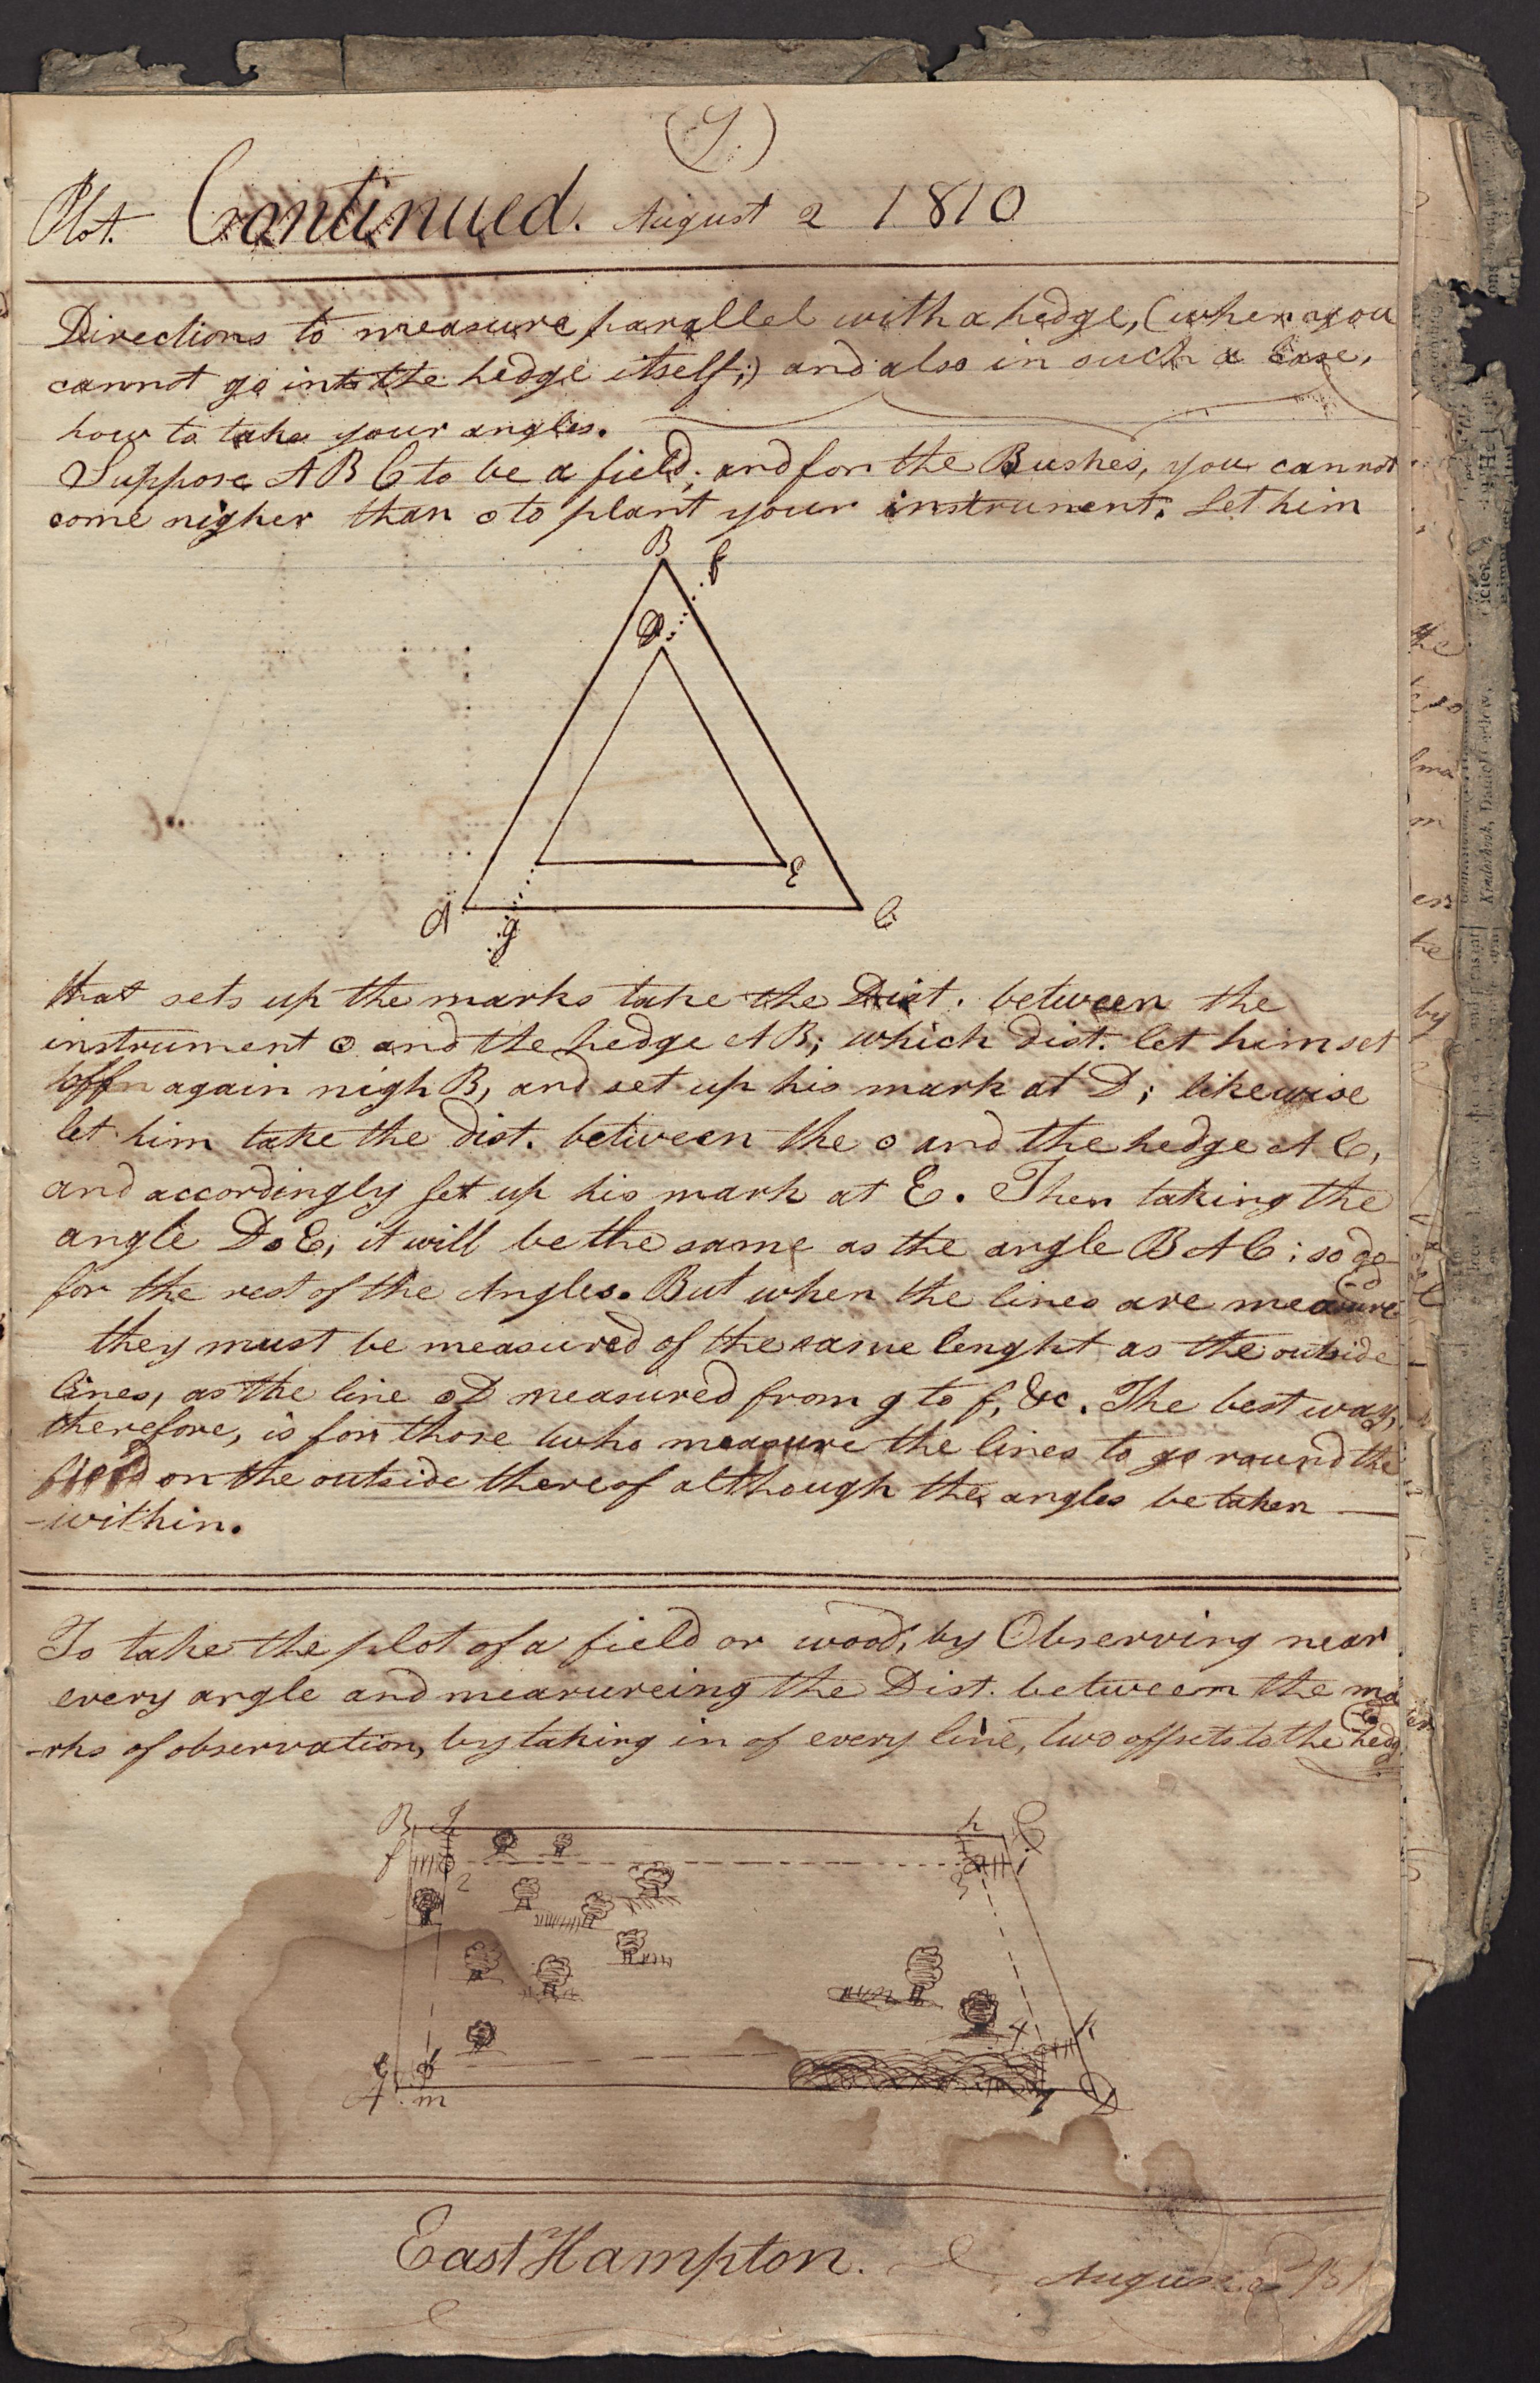 Plot. Continued. August 2 1810
Directions to measure parallel with a hedge, (when you
cannot go into the hedge itself;) and also in such a Case,
how to take your angles.
Suppose A B C to be a field; and for the Bushes, you cannot
come nigher than o to plant your instrument: Let him
B
f
D
E
A
g
C
that sets up the marks take the Dist. between the
instrument o and the hedge AB; which dist. let him set
off again nigh B, and set up his mark at D; likewise
let him take the dist. between the o and the hedge A C,
and accordingly set up his mark at E. Then taking the
angle DoE, it will be the same as the angle B A C: so do
for the rest of the Angles. But when the lines are measured
they must be measured of the same lenght as the outside
lines, as the line oD measured from g to f, &c. The best way,
therefore, is for those who measure the lines to go round the
field on the outside thereof although the angles be taken
-within.
To take the plot of a field or wood, by Observing near
every angle and measureing the Dist. between the ma
-rks of observation, by taking in of every line, two offsets to the hedge
B g h C
f 2 3 i
4 K
e
A m D
East Hampton.
August